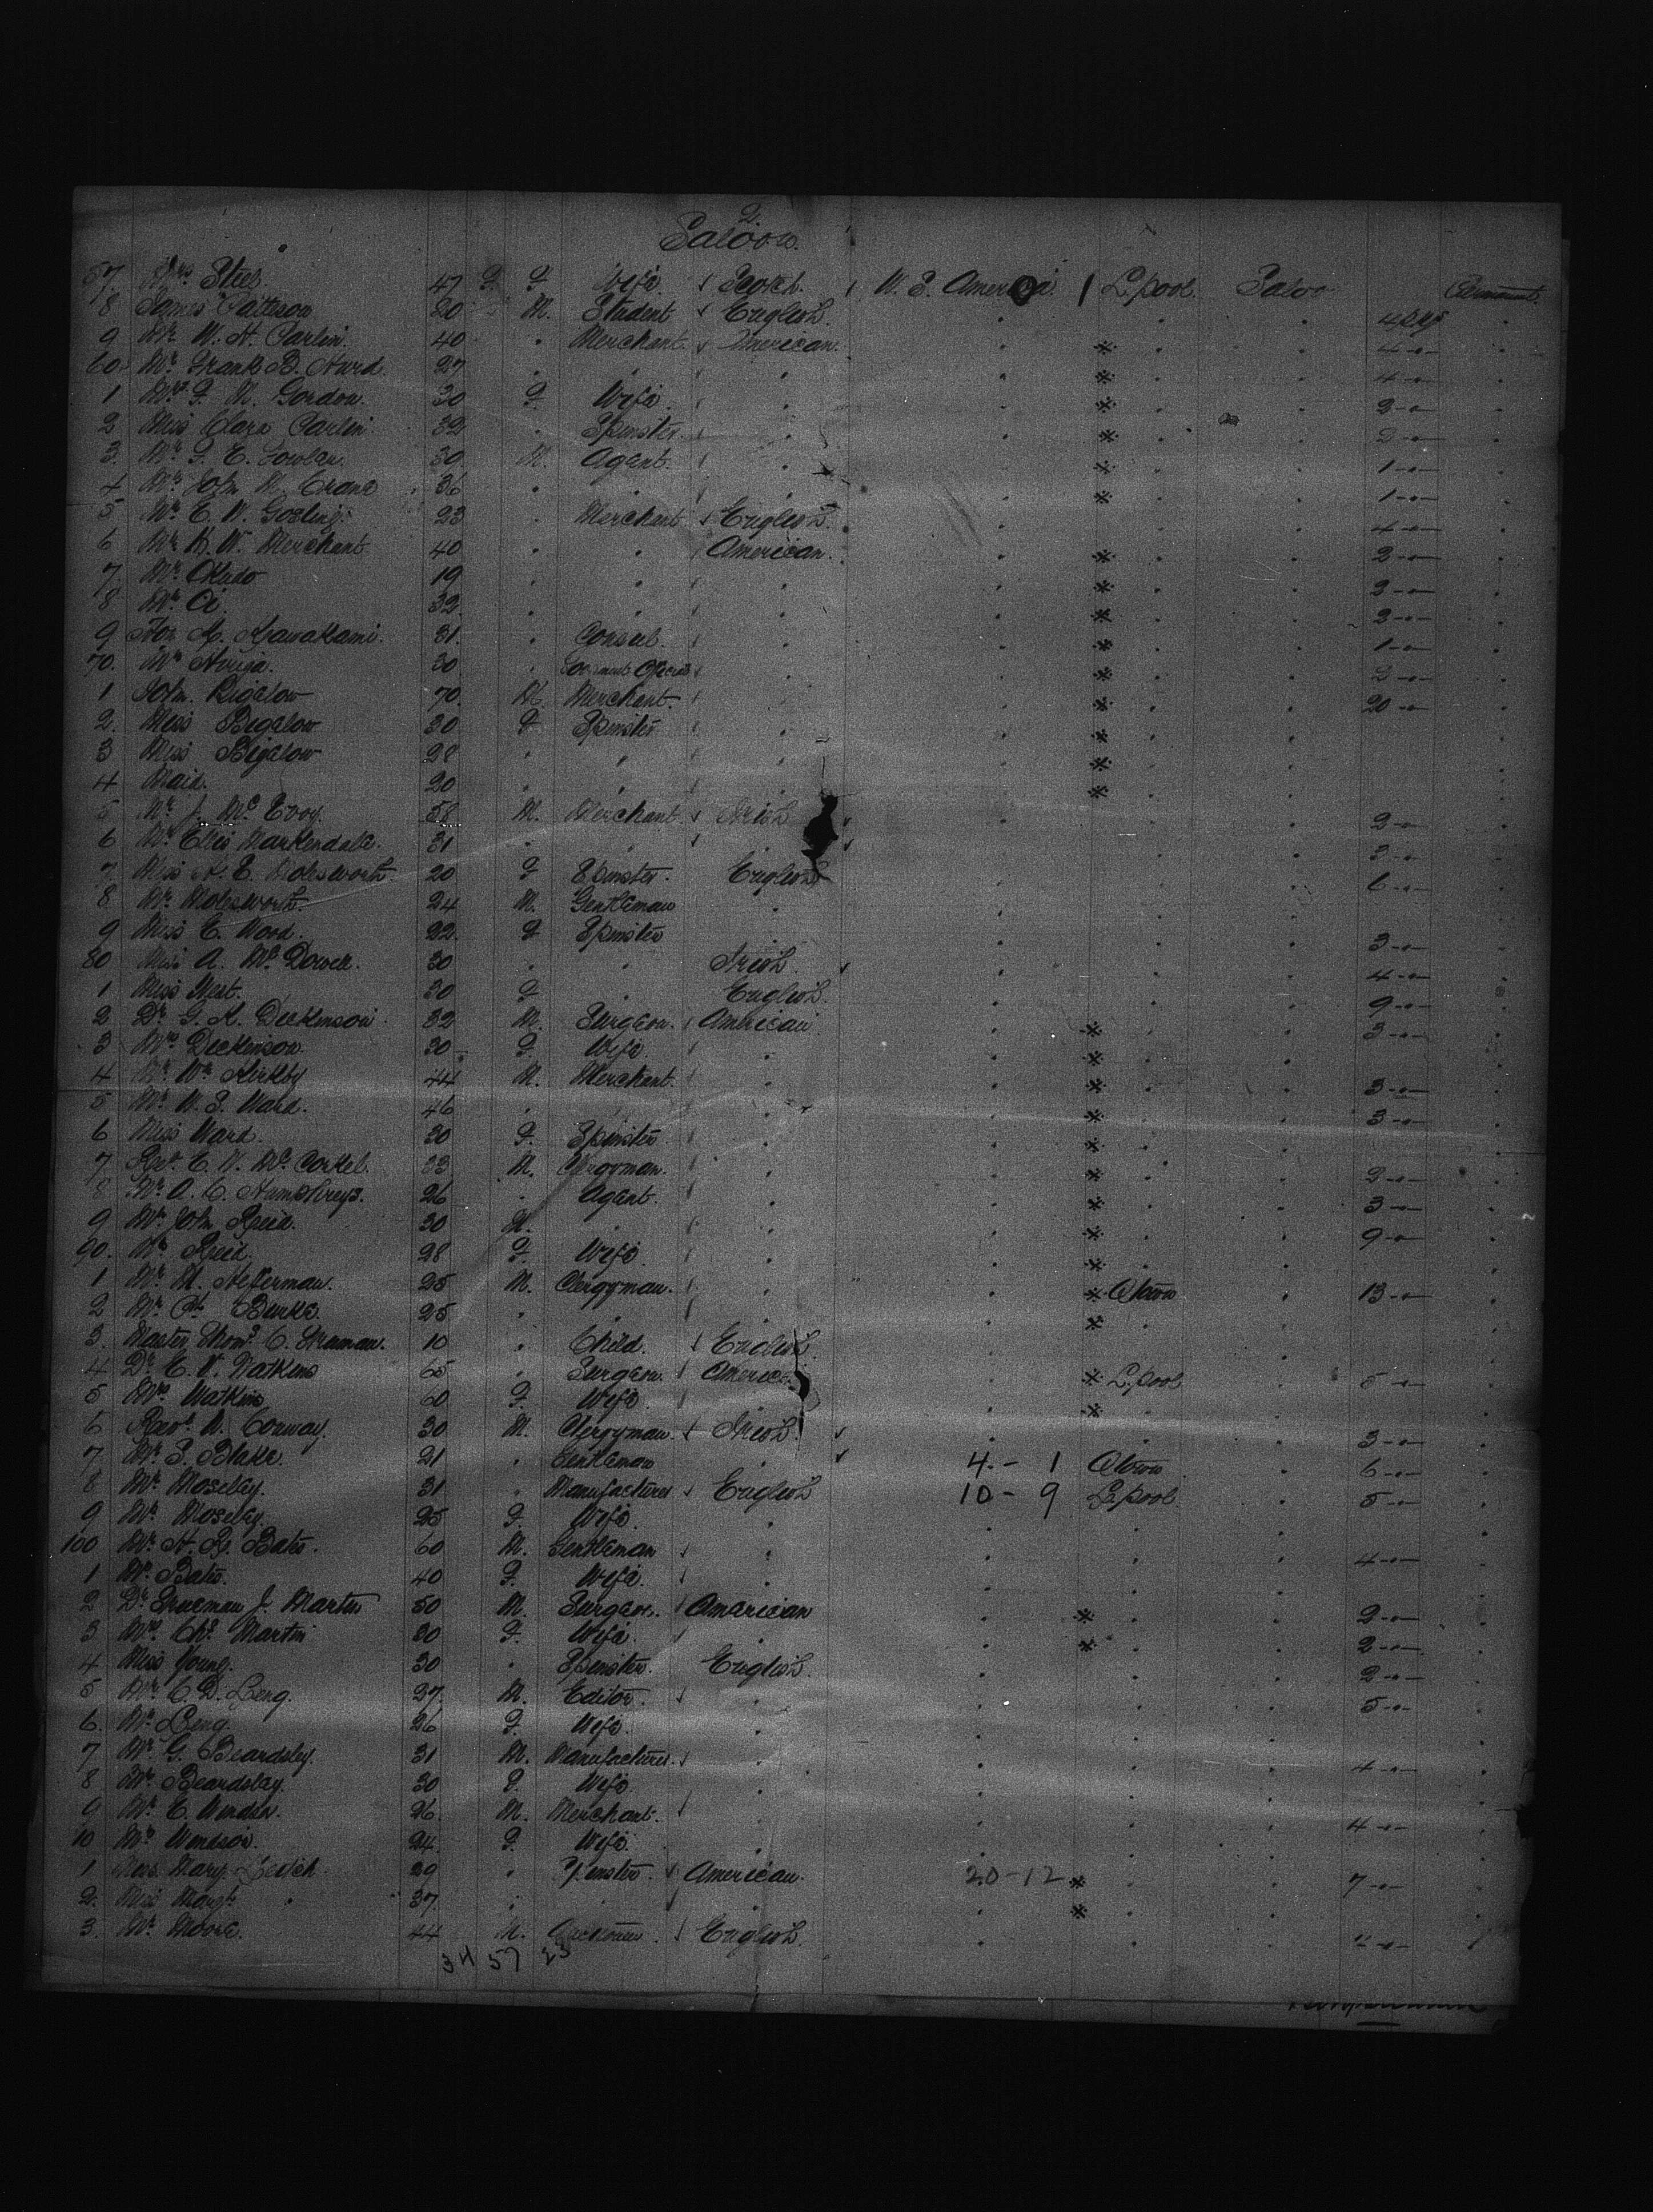 2.
Saloon.
57. Mrs Steel. 47 F. Wife Scotch. U. S. America L'pool. Saloo
8 James Patteson 20 M. Student English. 4
9 Mr W. H. Carlin. 40 " Merchant American. 4
60. Mr Frank B. Hurd 27 " " " 4
1 Mrs F. M. Gordon. 30 F. Wife. " 2
2 Miss Clara Carlin. 32 " Spinster. "
3. Mr F. E. Fowler. 30 M. Agent. " 1
4 Mr John M. Crane 36 " " " 1
5 Mr E. W. Gosling. 23 " Merchant English. 4
6 Mr H. W. Merchant 40 " " American. 2
7. Mr Okado 19 " " "
8 Mr Oi. 32. " " "
9 K. Kawakami. 31. " Consul. " 1
70. 30 "
1 John Bigalow 70. M. Merchant. " 20
2. Miss Bigalow 30 F Spinster "
3 Miss Bigalow 28 " " "
4 Maid. 20 " " "
5 Mr J. Mc Evoy. 58 M. Merchant. Irish 2
6 Mr Ellis Markendale. 31 " " "
7 Miss E. Molesworth 20 F Spinster. English 6
8 Mr Molesworth. 24 M. Gentleman "
9 Miss E. Wood. 22. F Spinster " 3
80 Miss A. Mc Dowell. 30 " " Irish. 4
1 Miss West. 30 F " English. 9
2 Dr G. K. Dickinson. 32 M. Surgeon. American 3
3 Mrs Dickinson. 30 F. Wife. "
4 Mr Wm Kirkby 44 M. Merchant. " 3
5 Mr W. S. Ward. 46 " " " 3
6 Miss Ward. 30 F. Spinster "
7 Revd. E. W. Mc Corkel. 33 M. Clergyman. " 2
8 Mr A. C. Humphreys. 26 " Agent. " 3
9 Mr John Reid. 30 M. " " 9
90. Mrs Reid. 28 F. Wife "
1 Mr M. Heffernan. 25 M. Clergyman. " Qtown 13
2 Mr Burke. 25 " " "
3. Master Thoms C. 10 " Child. English
4 Dr E. W. Watkins 65 " Surgeon. America L'pool 5
5 Mrs Watkins 60 F. Wife "
6 Revd W. Conway. 30 M. Clergyman. Irish. 3
7. Mr S. Blake. 21 " Gentleman 4 - 1 Qtown 6
8 Mr Moseley. 31 " Manufacturer English 10 - 9 L'pool. 5
9 Mrs Moseley. 25 F. Wife. "
100 Mr H. B. Bates. 60 M. Gentleman " 4
1 Mrs Bates. 40 F. Wife. "
2 Dr Trueman J. Martin 50 M. Surgeon. American 2
3 Mrs Chs Martin 30 F. Wife. " 2
4 Miss Young. 30 " Spinster. English. 2
5 Mr C. D. Leng. 27. M. Editor. " 5
6. Mrs Leng. 26 F. Wife. "
7 Mr G. Beardsley. 31 M. Manufacturer. " 4
8 Mrs Beardsley. 30 F. Wife. "
9 Mr E. Windsor. 26. M. Merchant. " 4
10 Mrs Windsor. 24. F. Wife. "
1 Miss Mary Leitch 29 " Spinster. American. 20-12 7
2. Miss Margt. " 37. " " "
3. Mr Moore. 44 M. English.
34 57 23